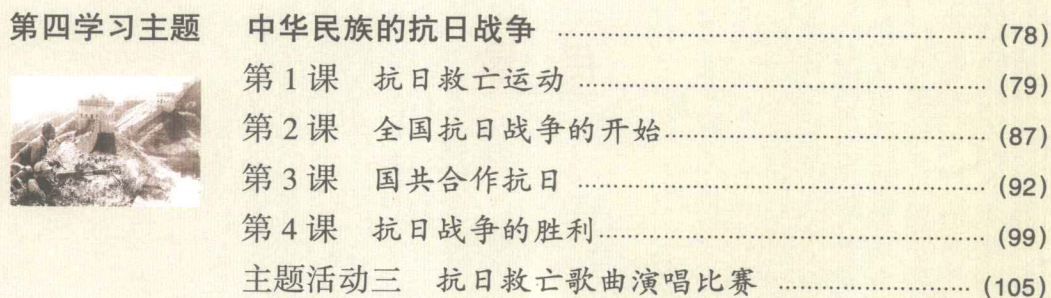 第四学习主题 中华民族的抗日战争 …… (78)
第1课 抗日救亡运动 …… (79)
第2课 全国抗日战争的开始 …… (87)
第3课 国共合作抗日 …… (92)
第4课 抗日战争的胜利 …… (99)
主题活动三 抗日救亡歌曲演唱比赛 …… (105)